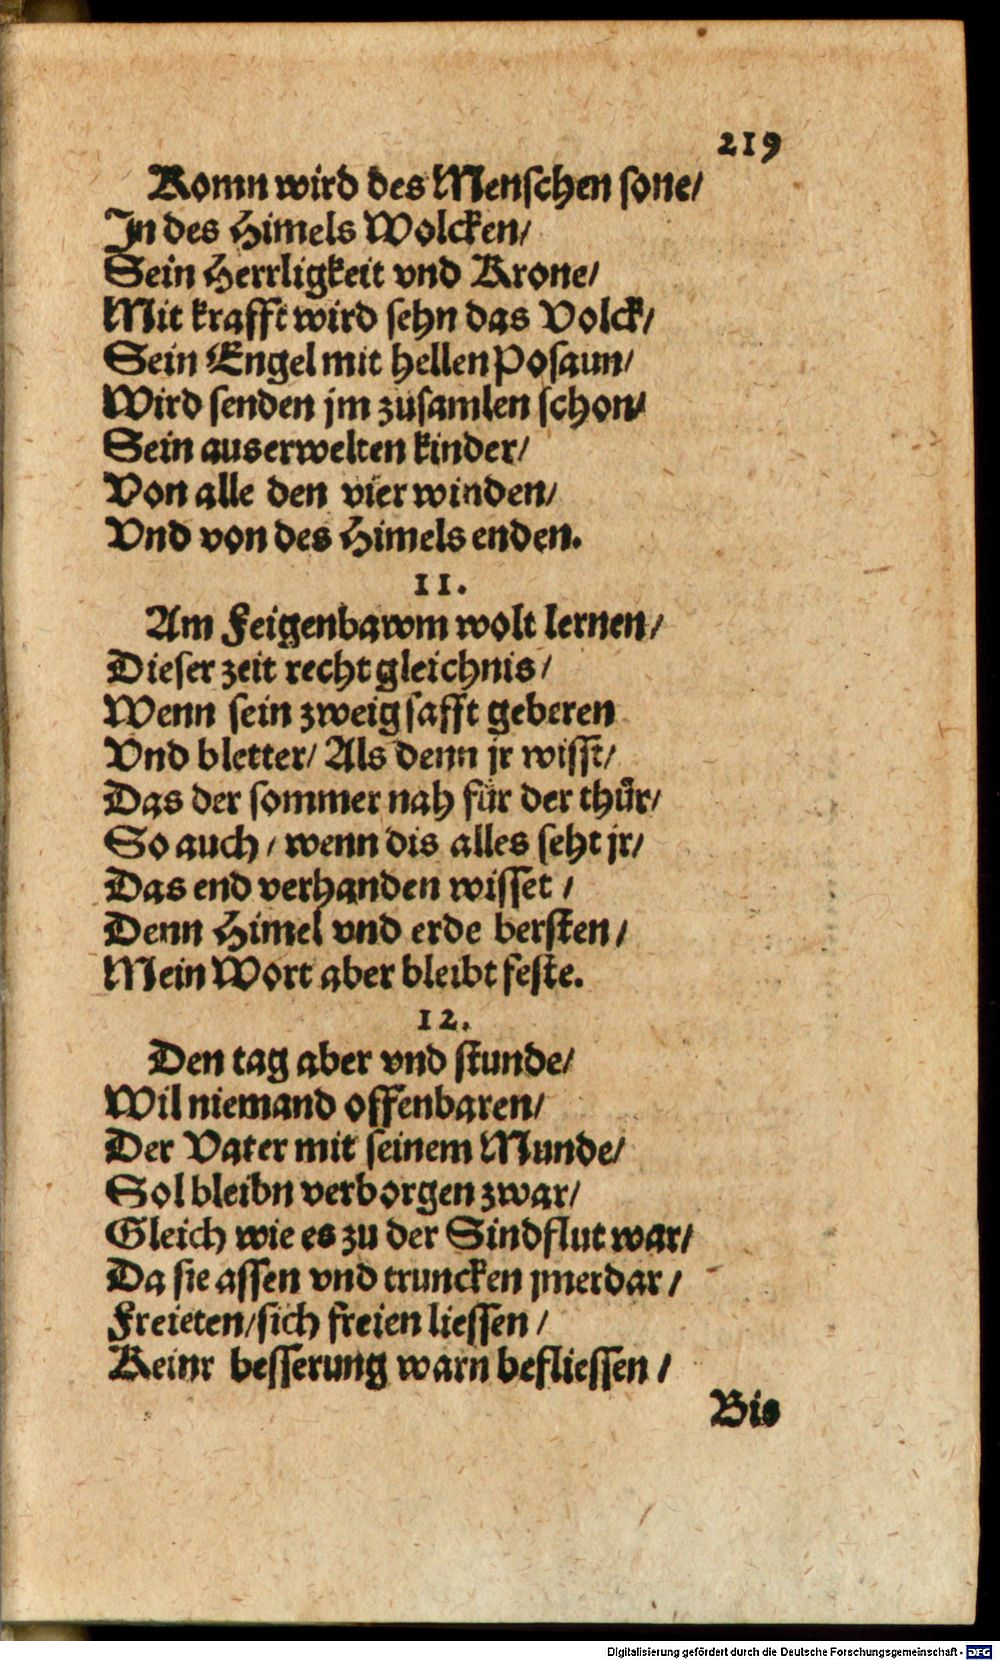 219
Komn wird des Menschen sone/
In des Himels Wolcken/
Sein Herrligkeit vnd Krone/
Mit krafft wird sehn das Volck/
Sein Engel mit hellen Posaun/
Wird senden jm zusamlen schon/
Sein auserwelten kinder/
Von alle den vier winden/
Vnd von des Himels enden.
11.
Am Feigenbawm wolt lernen/
Dieser zeit recht gleichnis/
Wenn sein zweig safft geberen
Vnd bletter/ Als denn jr wisst/
Das der sommer nah für der thür/
So auch / wenn dis alles seht jr/
Das end verhanden wisset /
Denn Himel vnd erde bersten /
Mein Wort aber bleibt feste.
12.
Den tag aber vnd stunde/
Wil niemand offenbaren/
Der Vater mit seinem Munde/
Sol bleibn verborgen zwar/
Gleich wie es zu der Sindflut war/
Da sie assen vnd truncken jmerdar /
Freieten/ sich freien liessen /
Keinr besserung warn befliessen /
Bis
Digitalisierung gefördert durch die Deutsche Forschungsgemeinschaft - DFG